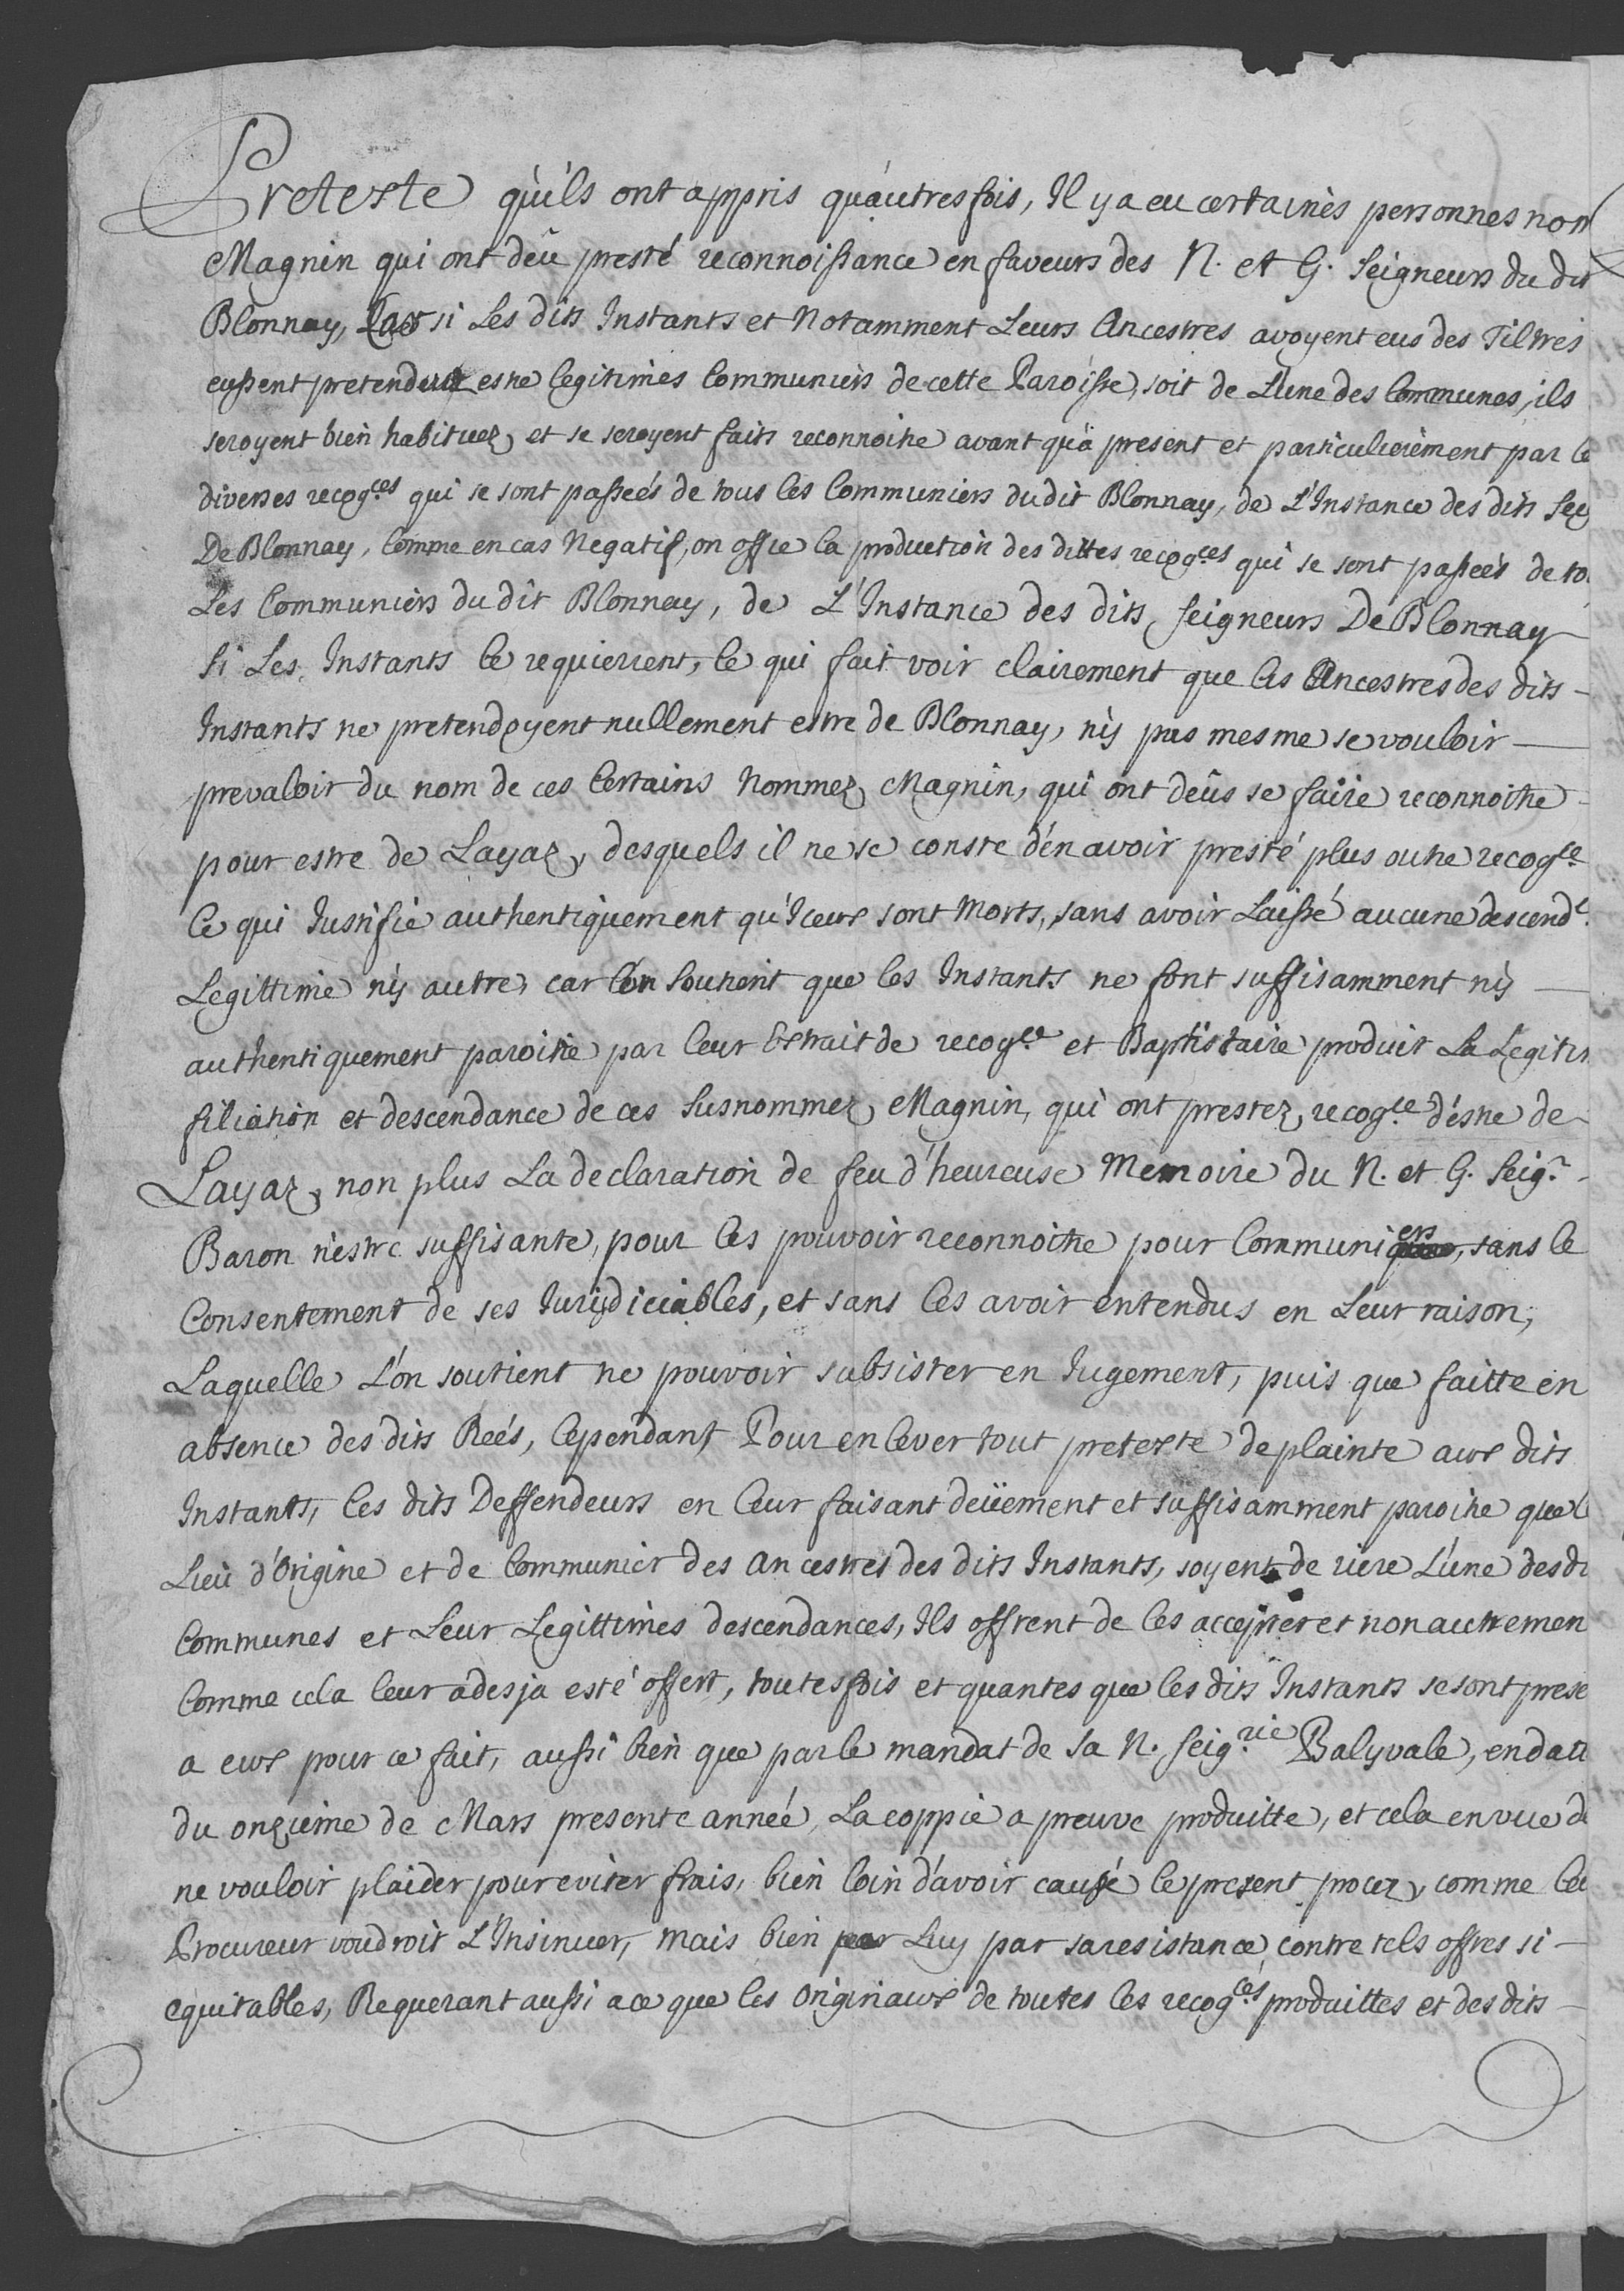 Pretexte qu'ils ont appris qu'autres fois, Il y a eu certaines personnes nom
Magnin qui ont deü presté reconnoissance en faveurs des N. et G. Seigneurs du dit
Blonnay, Car si Les dits Instants et Notamment Leurs Ancestres avoyent eus des Tiltres
eussent pretendu estre legitimes Communiers de cette Paroisse, soit de L'une des Communes, ils
seroyent bien habituez, et se seroyent faits reconnoitre avant qu'à present et particulierement par le
diverses recog.ces qui se sont passeés de tous les Communiers du dit Blonnay, de L'Instance des dits Sei
De Blonnay, Comme en cas Negatif, on offre la production des dittes recog.ces qui se sont passeés de to
Les Communiers du dit Blonnay, de L'Instance des dits Seigneurs De Blonnay
si Les Instants le requierrent, Ce qui fait voir clairement que les Ancestres des dits -
Instants ne pretendoyent nullement estre de Blonnay, ny pas mesme se vouloir —
prevaloir du nom de ces Certains Nommez Magnin, qui ont deûs se faire reconnoitre -
pour estre de Layaz, desquels il ne se conste d'en avoir presté plus outre recog.ce
Ce qui Justifie authentiquement qu'Iceux sont Morts, sans avoir Laissé aucune descend.e
Legittime ny autre, car L'on soutient que les Instants ne font suffisamment ny —
authentiquement paroitre par leur Extrait de recog.ce et Baptistaire produit La Legitim
filiation et descendance de ces susnommez Magnin, qui ont prestez recog.ce d'estre de
Layaz, non plus La declaration de feu d'heureuse Memoire du N. et G. Seig.r -
Baron n'estre suffisante, pour les pouvoir reconnoitre pour Communiers, sans le
Consentement de ses Jurisdiciables, et sans les avoir entendus en Leur raison,
Laquelle L'on soutient ne pouvoir subsister en Jugement, puis que faitte en
absence des dits Reés, Cependant Pour enlever tout pretexte de plainte aux dits
Instants, les dits Deffendeurs en leur faisant deüement et suffisamment paroitre que l
Lieu d'Origine et de Communier des Ancestres des dits Instants, soyent de riere L'une des di
Communes et Leur Legittimes descendances, Ils offrent de les accepter et non autremen
Comme cela leur a desja esté offert, toutes fois et quantes que les dits Instants se sont prese
a eux pour ce fait, aussi bien que par le mandat de sa N. Seig.rie Balyvale, en datt
du onzieme de Mars presente année, La coppie a preuve produitte, et cela en vue d
ne vouloir plaider pour eviter frais, bien loin d'avoir causé le present procez, comme le
Procureur voudroit L'Insinuer, mais bien Luy par sa resistance contre tels offres si -
equitables, Requerant aussi a ce que les Originaux de toutes les recog.ces produittes et des dits -